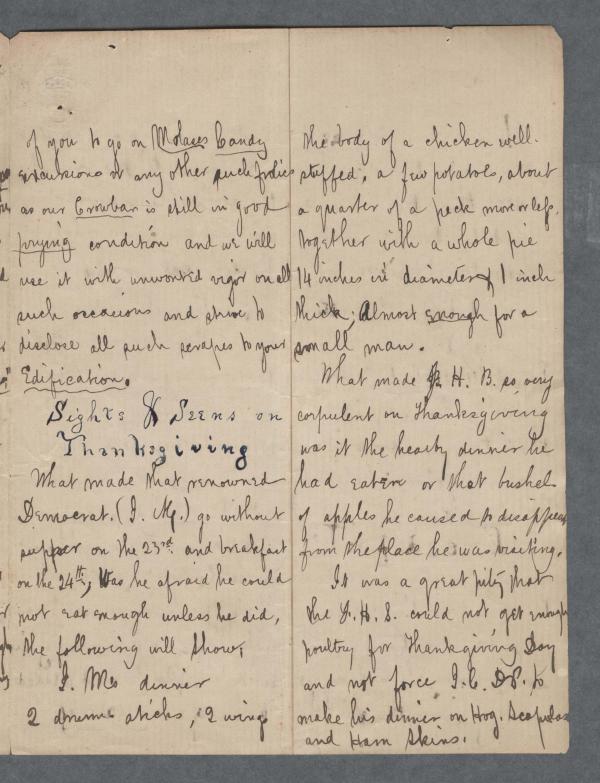 of you to go on Molases Candy
excursions or any other such frolics
as our Crowbar is still in good
prying condition and we will
use it with unwonted vigor on all
such occasions and strive to
disclose all such scrapes to your
Edification.
Sights & Seens on
Thanksgiving
What made that renowned
Democrat. (I. M.) go without
supper on the 23rd and breakfast
on the 24th, Was he afraid he could
not eat enough unless he did,
the following will show,
I. Ms dinner
2 drumsticks, 2 wings
the body of a chicken well
stuffed, a few potatoes, about
a quarter of a peck more or less,
together with a whole pie
14 inches in diameter & 1 inch
thick, Almost enough for a
small man.
What made H. B. so very
corpulent on Thanksgiving
was it the hearty dinner he
had eaten or that bushel
of apples he caused to disappear
from the place he was visiting.
It was a great pity that
the H. S. could not get enough
poultry for Thanksgiving Day
and not force I. C. to
make his dinner on Hog. Scapulas
and Ham Skins.